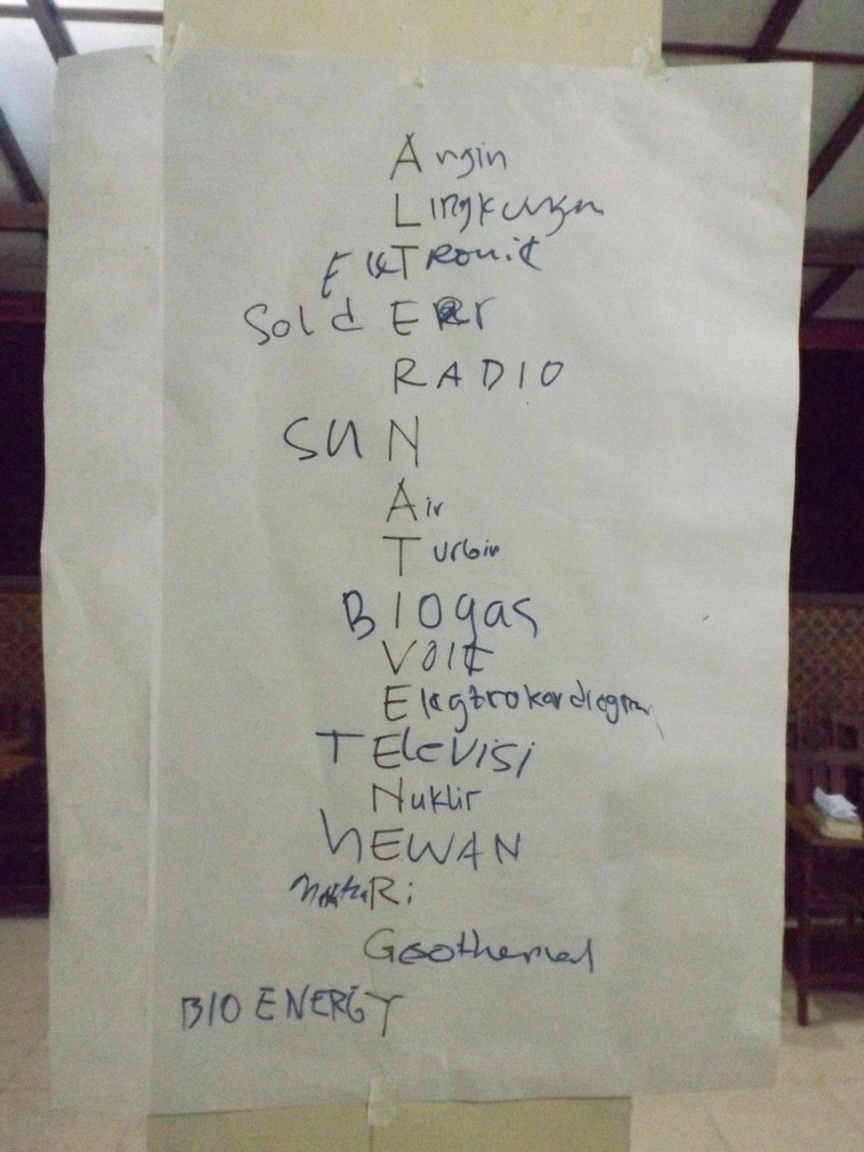 Angin
Lingkungan
ElkTRonik
Sold Er
RADIO
SUN
Air
Turbin
BIOgas
Volt
Elegtrokardiogram
TEleVisi
Nuklir
hEWAN
Geothermal
BIO ENERGY